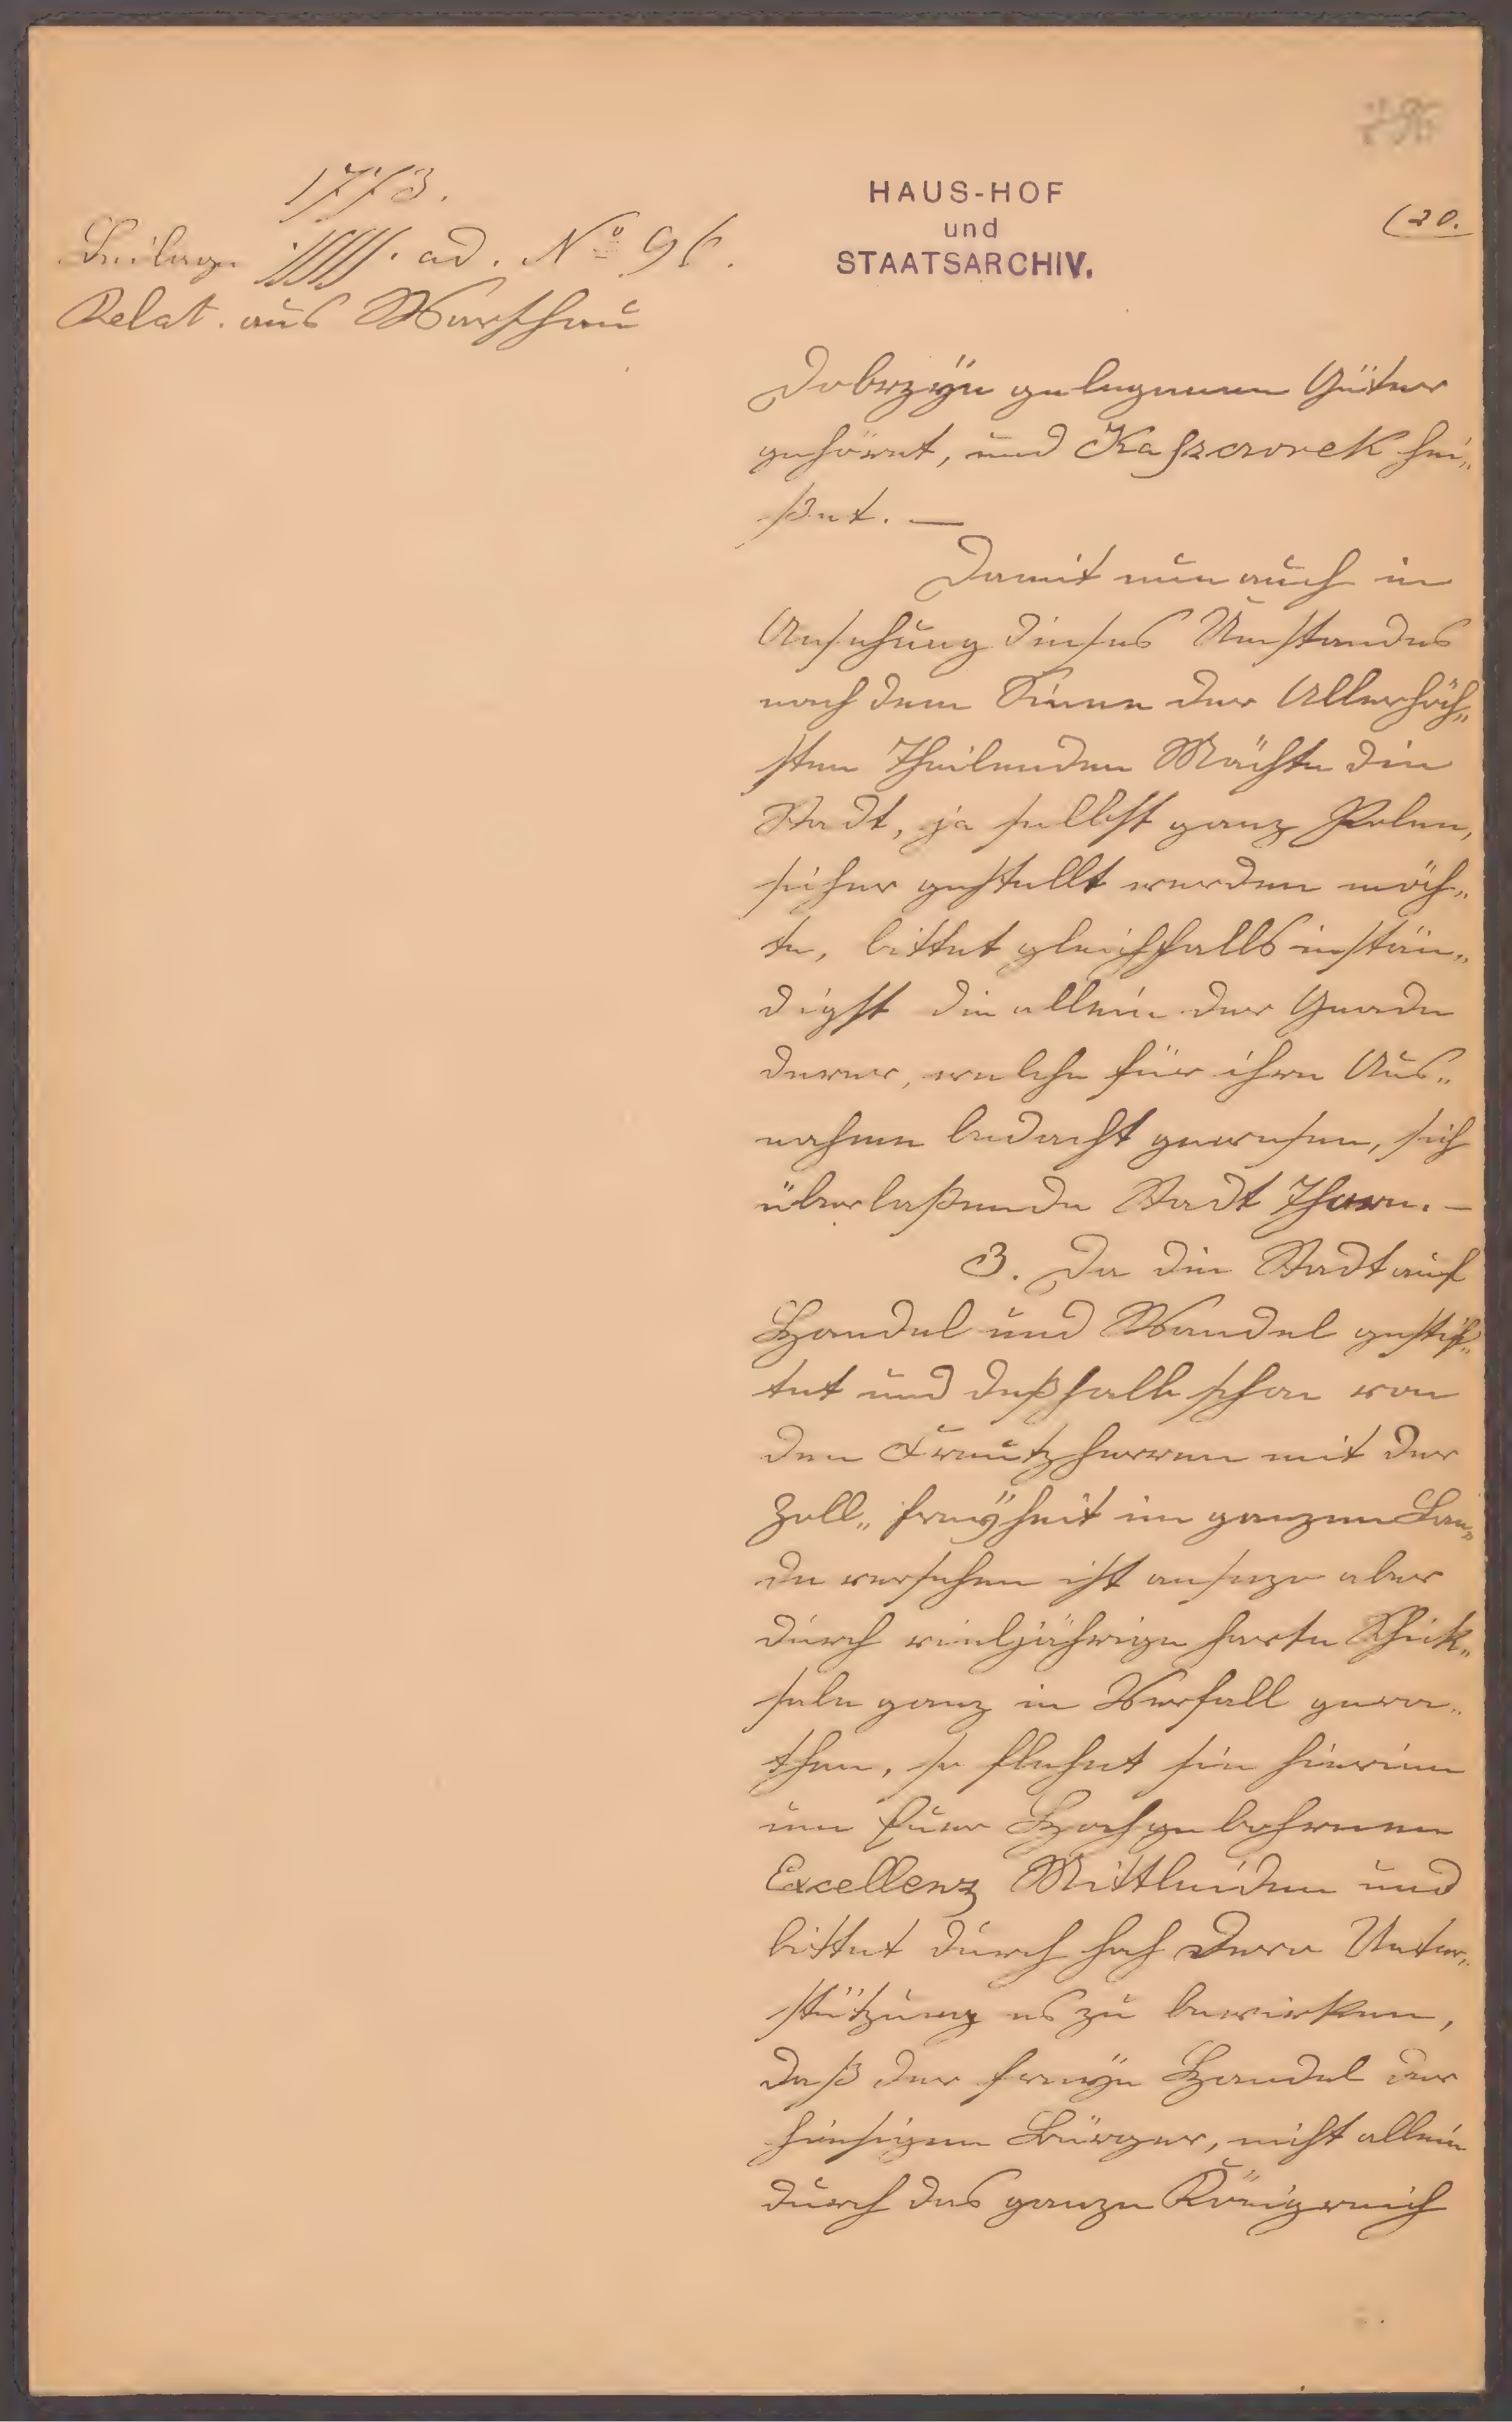 1773.
Beilage ad. No 96.
Relat. aus Warschau
HAUS-HOF
und
STAATSARCHIV.
(20.
Dobrzÿn gelegenen Güter
gehöret, und Kaszczorek hei„
ßet. —
Damit nun auch in
Ansehung dieses Umstandes
nach dem Sinne der Allerhöch„
sten Theilenden Mächte die
Stadt, ja selbst ganz Polen,
sicher gestellt werden möch„
te, bittet gleichfalls instän„
digst die allein der Gnade
derer, welche für ihre Aus„
nahme bedacht gewesen, sich
überlaßende Stadt Thorn. —
3. Da die Stadt auf
Handel und Wandel gestif„
tet und deßhalb schon von
den Kreutzherren mit der
Zoll„ freÿheit im ganzen Lan„
de versehen ist anjezo aber
durch vieljährige harte Schik„
sale ganz in Verfall gera„
then, so flehet sie hierinn
um Euer Hochgebohrnen
Excellenz Mittleiden und
bittet durch hoh Dero Unter„
stützung es zu bewirken,
daß der freÿe Handel der
hiesigen Bürger, nicht allein
durch das ganze Königreich